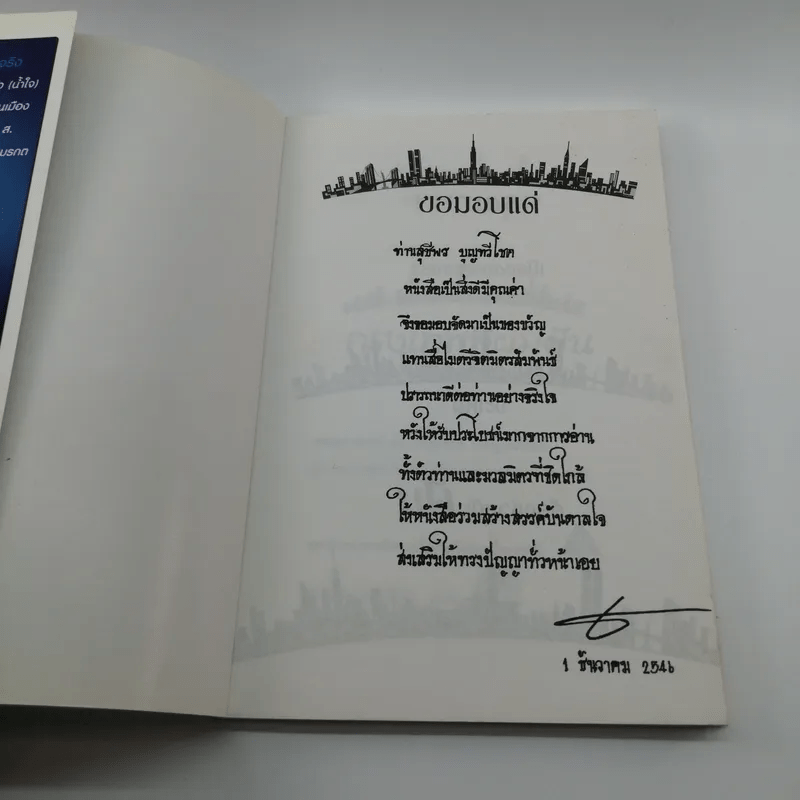 จริง
(น้ำใจ)
นเมือง
ส.
มรกต
ขอมอบแด่
ท่านสุชีพร บุญทวีโชค
หนังสือเป็นสิ่งดีมีคุณค่า
จึงขอมอบจัดมาเป็นของขวัญ
แทนสื่อไมตรีจิตมิตรสัมพันธ์
ปรารถนาดีต่อท่านอย่างจริงใจ
หวังให้รับประโยชน์มากจากการอ่าน
ทั้งตัวท่านและมวลมิตรที่ชิดใกล้
ให้หนังสือร่วมสร้างสรรค์บันดาลใจ
ส่งเสริมให้ทรงปัญญาทั่วหน้าเอย
1 ธันวาคม 2546